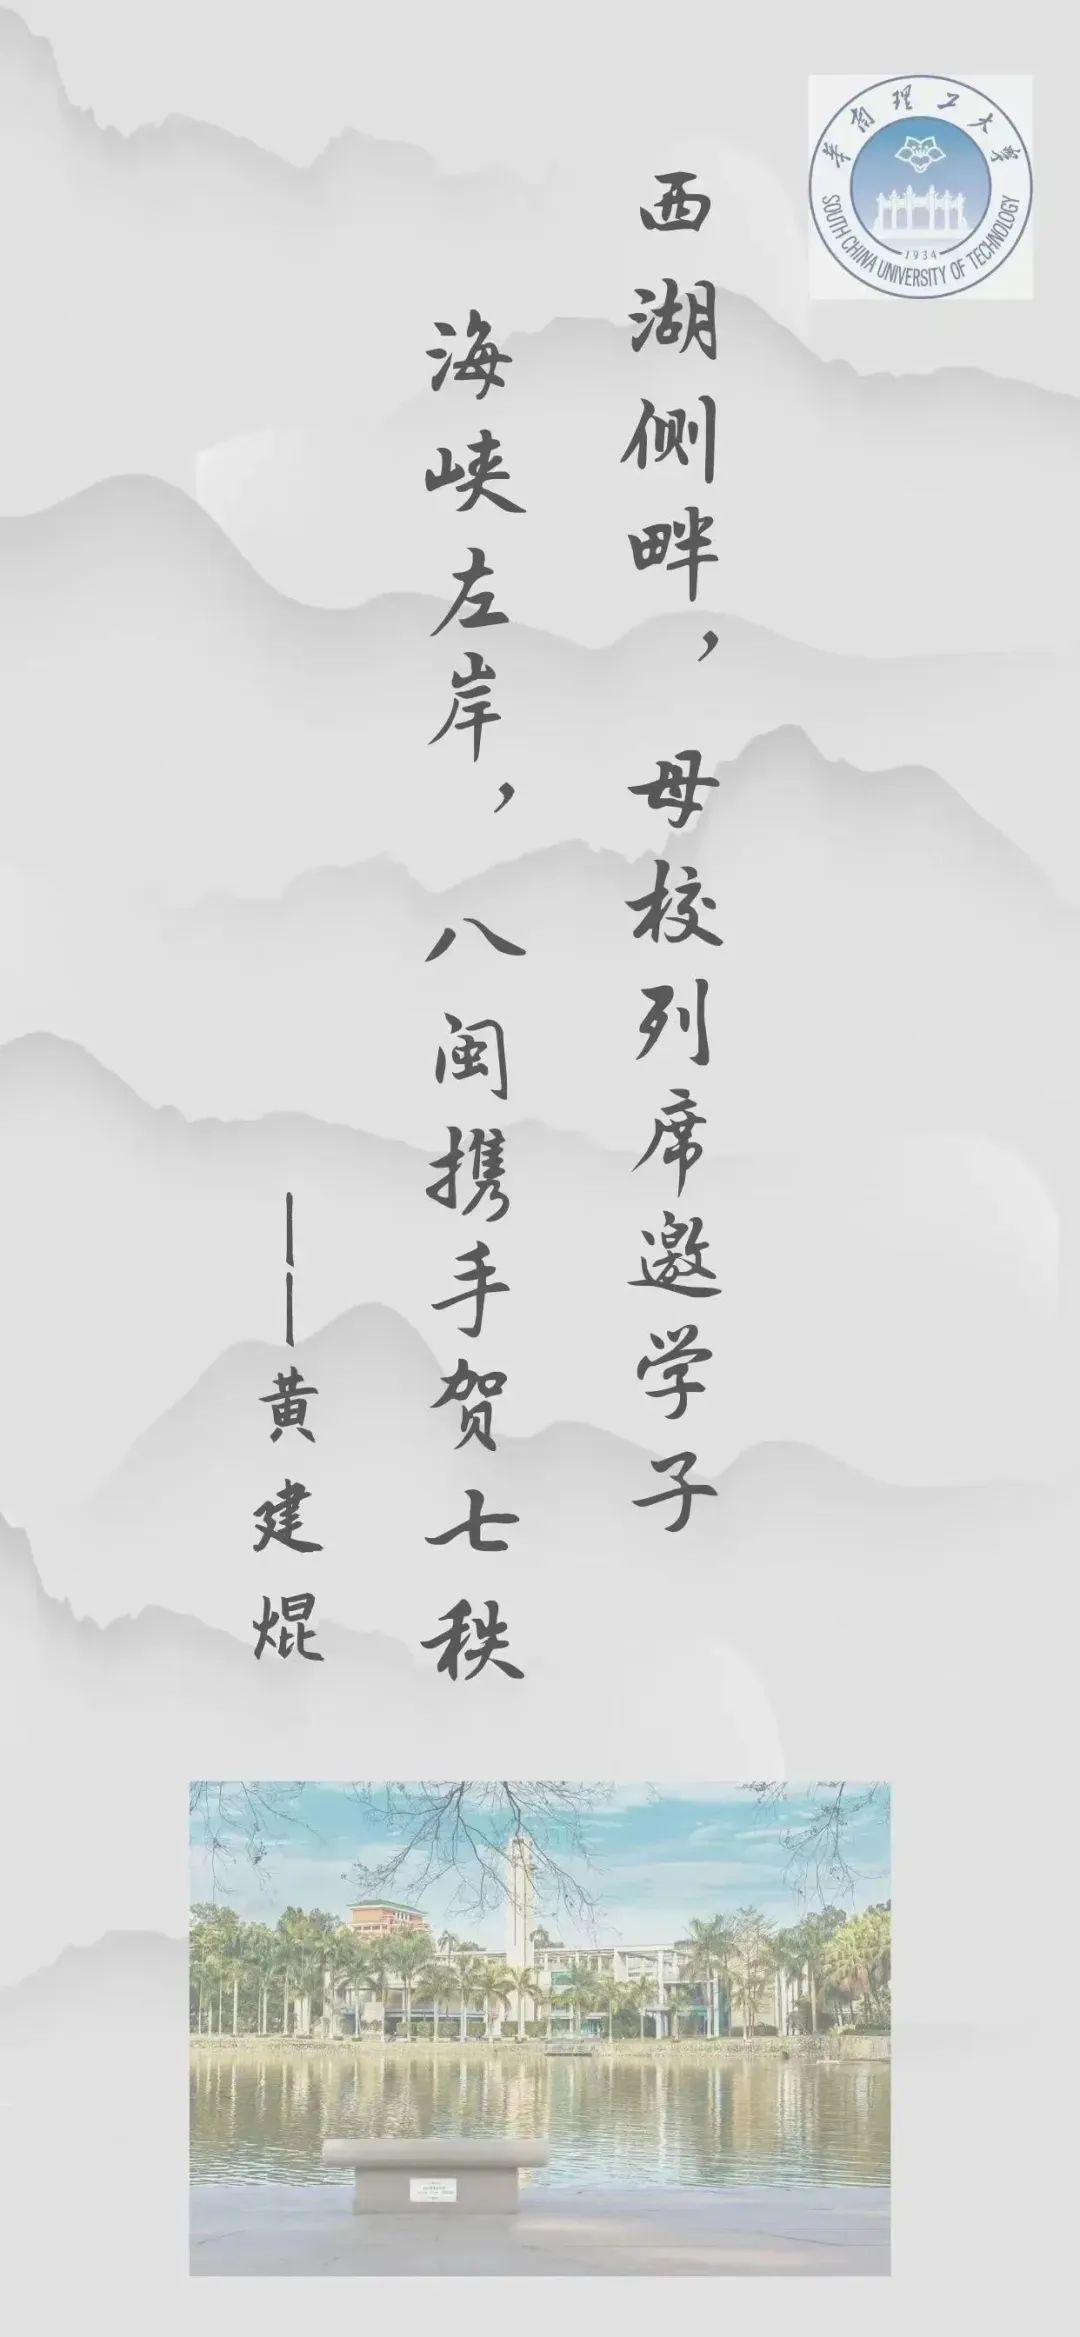 华南理工大学
SOUTH CHINA UNIVERSITY OF TECHNOLOGY
1934
西湖侧畔，母校列席邀学子
海峡左岸，八闽携手贺七秩
——黄建焜